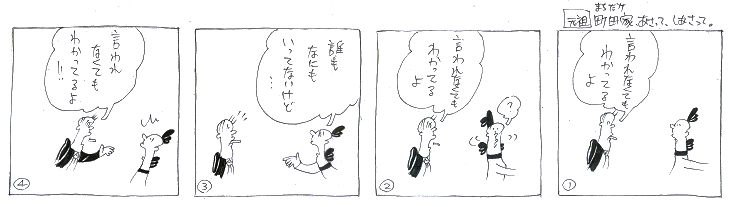 元祖 町田家、あさって、しあさって。
まちだけ
言われなくても
わかってる
よ
①
言われなくても
わかってる
よ
?
②
誰も
なにも
いってないけど
…
③
言われ
なくても
わかってるよ
!!
④